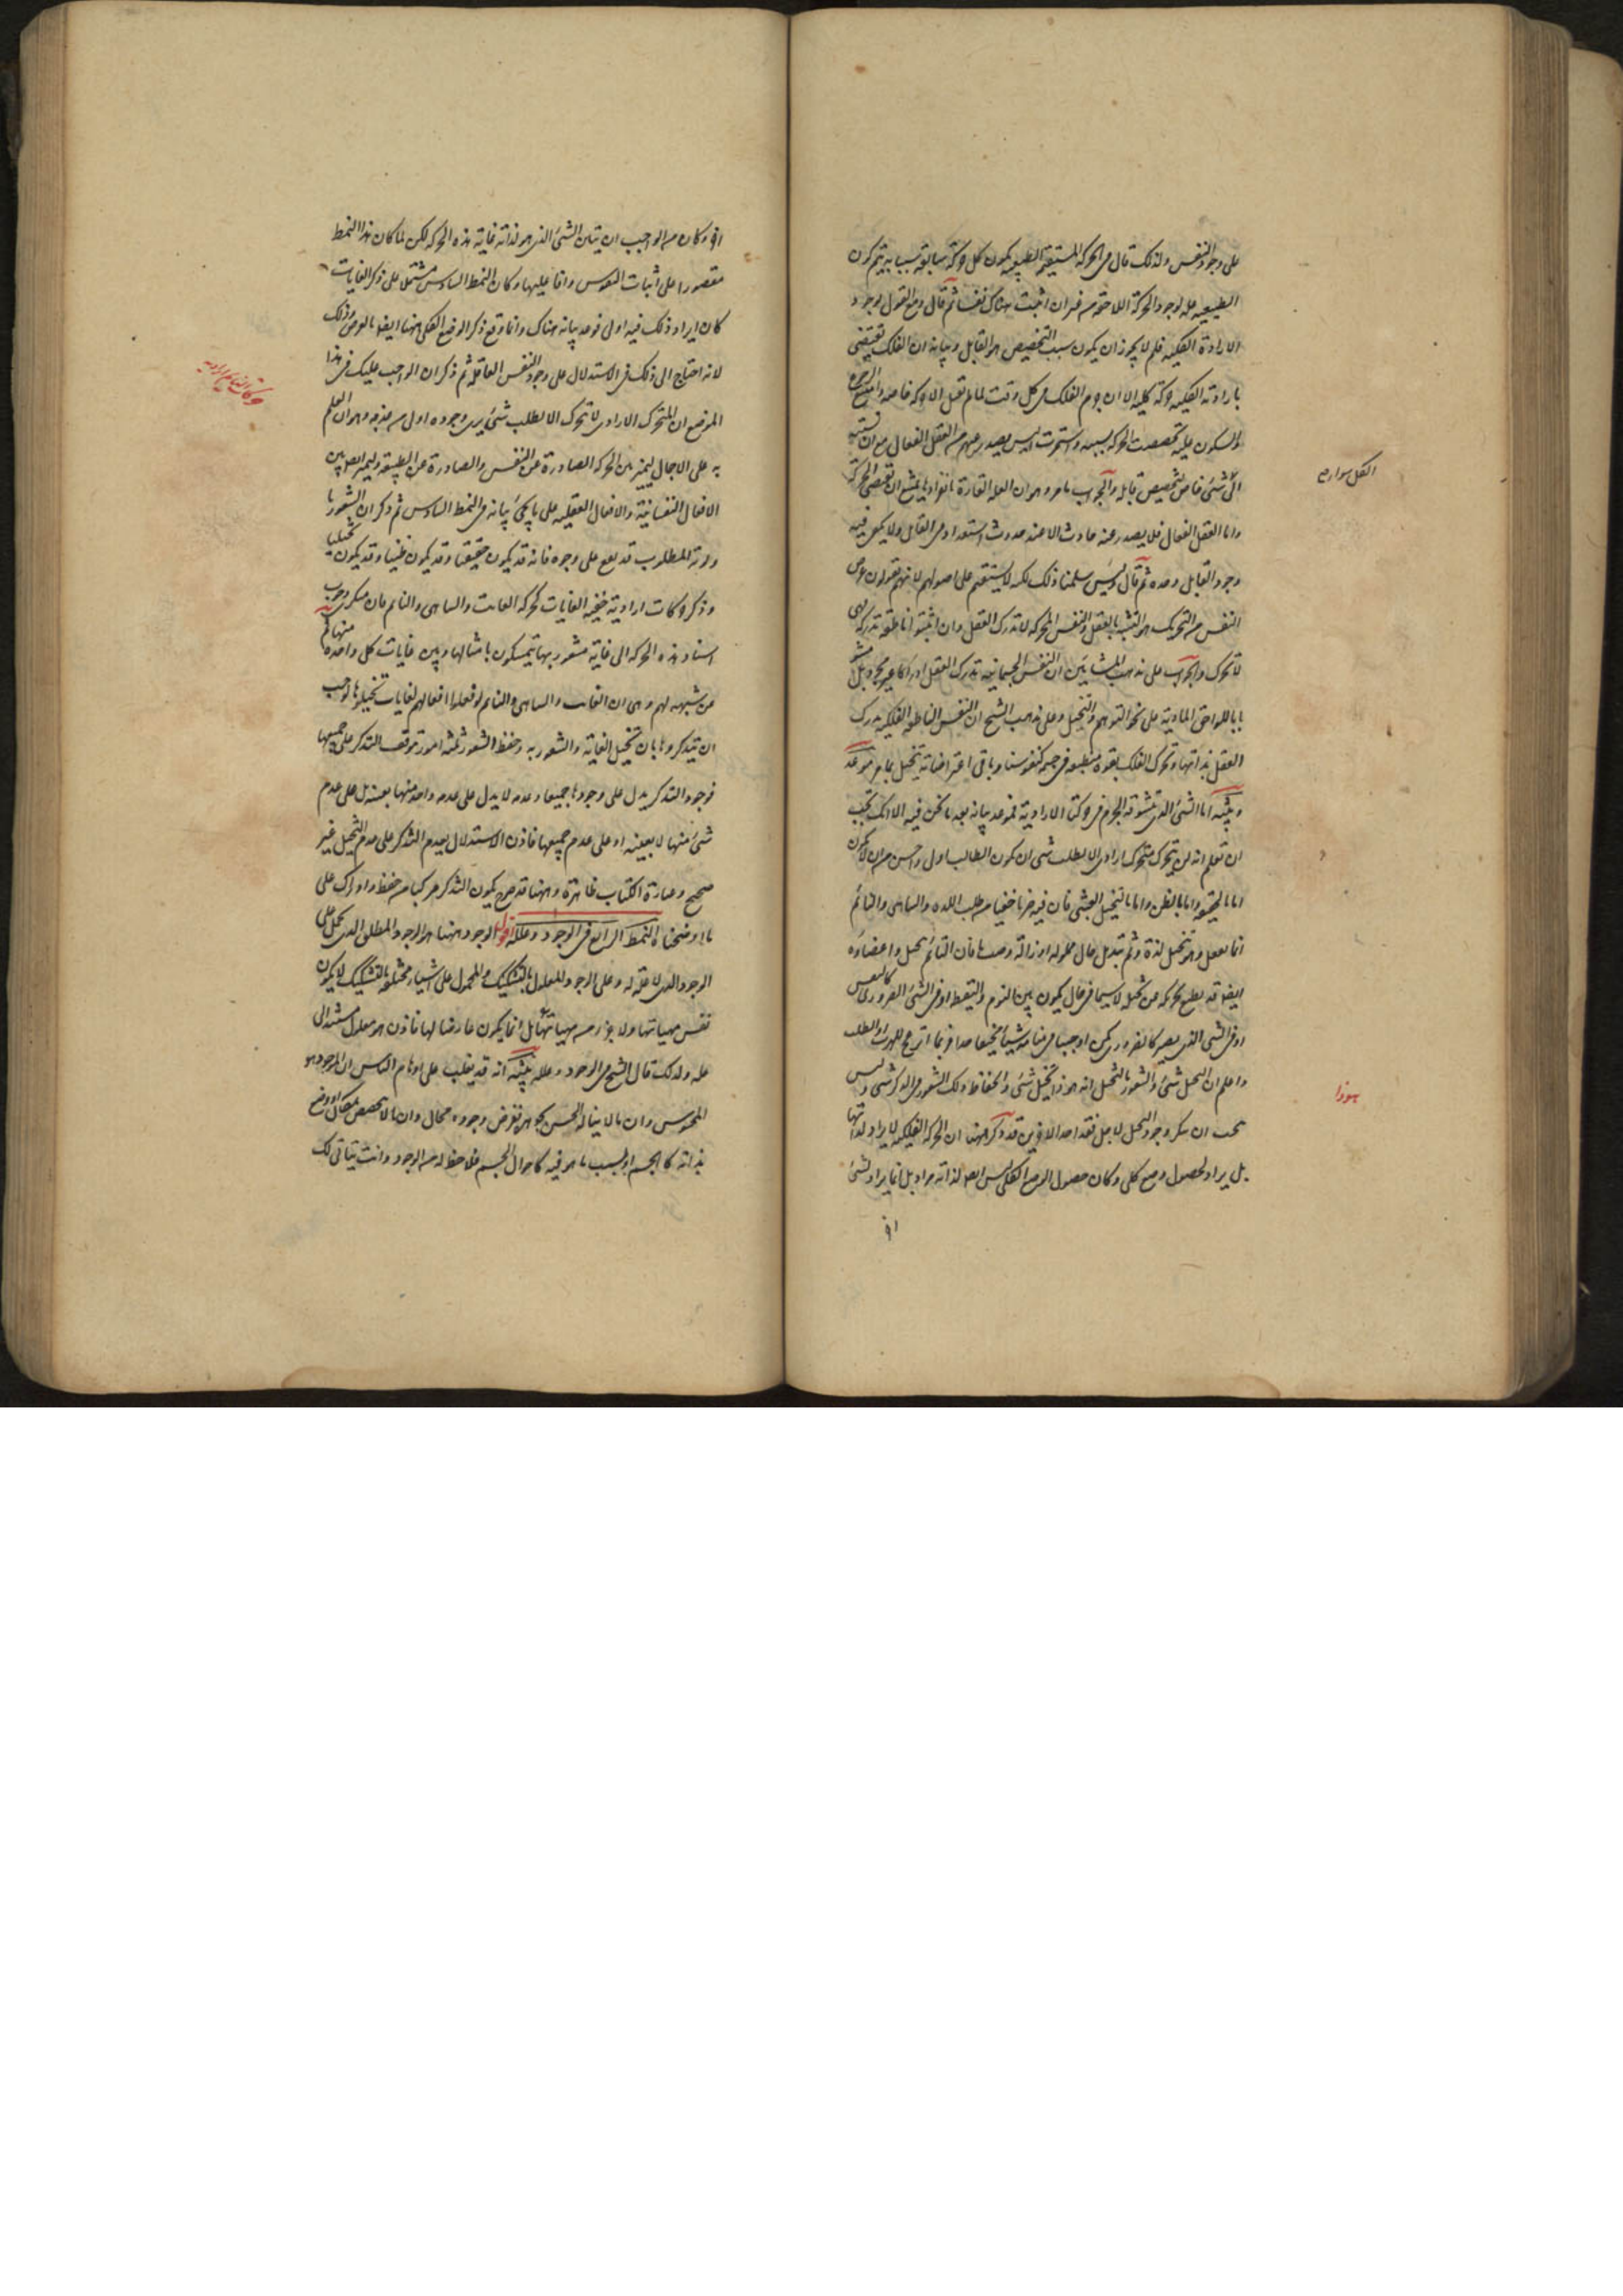 على وجود النفس ولذلك قال فى الحركة المستقيمة الطبيعية يكون كل حركة سابقة سببا به يتم كون
الطبيعيه علة لوجود الحركة اللاحقة من غير ان اثبت هناك نفسا ثم قال ومع القول بوجود
الارادة الكليه فلم لا يجوز ان يكون سبب التخصيص هو القابل وبيانه ان الفلك تقتضى
بارادته الكليه حركة كليه الا ان جرم الفلك فى كل وقت لما لم تقبل الا حركة خاصه
والسكون عليه تخصصت الحركه بسببه واستمرت اليس يصدر عندهم من العقل الفعال مع ان نسبته
الى كل شئ خاص لتخصيص قابله والجواب ما مر وهو ان العلة القارة بانفرادها يمتنع ان تقتضى الحركة
واما العقل الفعال فلا يصدر عنه حادث الا عند حدوث استعداد فى القابل ولا يكفى فيه
وجود القابل وحده ثم قال ولئن سلمنا ذلك لكنه لا يستقيم على اصولهم لانهم يقولون غرض
النفس من التحريك هو التشبه بالعقل والنفس المحركه لا تدرك العقل وان اثبتوا ناطقة تدركه فهى
لا تحرك والجواب على مذهب المشائين ان النفس الجسمانيه تدرك العقل ادراكا غير مجرد بل مشوبا
باللواحق الماديه على نحو التوهم والتخيل وعلى مذهب الشيخ ان النفس الناطقه الفلكيه تدرك
العقل بذاتها وتحرك الفلك بقوة منطبعه فى جسمه كنفوسنا وباقى اعتراضاته ينحل بما مر موعد
وتنبيه اما الشئ الذى يتشوقه الجرم فى حركته الاراديه فموعد بيانه بعد ما نحن فيه الا انك يجب
ان تعلم انه لن يتحرك متحرك بارادة الا لطلب شئ ان يكون للطالب اولى واحسن من ان لا يكون
اما بالحقيقه واما بالظن واما بالتخيل العبثى فان فيه ضربا خفيا من طلب اللذه والساهى والنائم
انما يفعل وهو يتخيل لذة ثم تبدل حال مملوله او ازالة وصب ما فان النائم يخيل واعضاؤه
ايضا قد تطيع تحريكه عن تخيله لا سيما فى حال يكون بين النوم واليقظه او فى الشئ الضرورى كالنفس
او فى الشئ الذى يصير كالضرورى كمن
واعلم ان التخيل شئ والشعور بالتخيل انه هوذا يتخيل شئ وانحفاظ ذلك الشعور فى الذكر شئ وليس
يجب ان ينكر وجود التخيل لاجل فقد احد الاخرين قد ذكر ههنا ان الحركه الفلكيه لا يراد لذاتها
بل يراد لحصول وضع كلى وكان حصول الوضع الكلى ليس ايضا لذاته مراد بل انما يراد لشئ
الكل سواء
هوذا
اخر وكان من الواجب ان يبين الشئ الذى هو لذاته غاية هذه الحركه لكن لما كان هذا النمط
مقصورا على اثبات النفوس وافاعيلها وكان النمط السادس مشتملا على ذكر الغايات
كان ايراد ذلك فيه اولى فوعد بيانه هناك وانما وقع ذكر الوضع الكلى ههنا ايضا بالعرض وذلك
لانه احتاج الى ذلك فى الاستدلال على وجود النفس العاقلة ثم ذكر ان الواجب عليك فى هذا
الموضع ان المتحرك الارادى لا يتحرك الا لطلب شئ يرى وجوده اولى من عدمه وهو ان العلم
به على الاجمال ليتميز بين الحركه الصادرة عن النفس والصادرة عن الطبيعة وليتميز ايضا بين
الافعال النفسانية والافعال العقليه على ما يجئ بيانه فى النمط السادس ثم ذكر ان الشعور با
ولوية المطلوب قد يقع على وجوه فانه قد يكون حقيقيا وقد يكون ظنيا وقد يكون تخيليا
وذكر حركات اراديه خفيه الغايات كحركه العابث والساهى والنائم فان منكرى وجوب
اسناد هذه الحركه الى غاية مشعور بها يتمسكون بامثالها وبين غايات كل واحدة منها ثم
عن شبهه لهم وهى ان العابث والساهى والنائم لو فعلوا افعالهم لغايات تخيلوها لوجب
ان يتذكروها بان تخيل الغاية والشعور به وحفظ الشعور ثلثه امور يتوقف التذكر على جميعها
فوجود التذكر يدل على وجودها جميعا وعدمه لا يدل على عدم واحد منها بعينه بل على عدم
شئ منها لا بعينه او على عدم جميعها فاذن الاستدلال بعدم التذكر على عدم التخيل غير
صحيح وعبارة الكتاب ظاهرة وههنا قد صرح بكون التذكر مركبا من حفظ وادراك على
ما اوضحناه النمط الرابع فى الوجود وعلله اقول الوجود ههنا هو الوجود المطلق الذى يحمل على
الوجود الذى لا علة له وعلى الوجود المعلول بالتشكيك والمحمول على اشياء مختلفه بالتشكيك لا يكون
نفس مهياتها ولا جزء من مهياتها بل انما يكون عارضا لها فاذن هو معلول مستند الى
علة ولذلك قال الشيخ فى الوجود وعلله تنبيه انه قد يغلب على اوهام الناس ان الموجود هو
المحسوس وان ما لا يناله الحس بجوهره ففرض وجوده محال وان ما لا يتخصص بمكان او وضع
بذاته كالجسم او بسبب ما هو فيه كاحوال الجسم فلا حظ له من الوجود وانت يتاتى لك